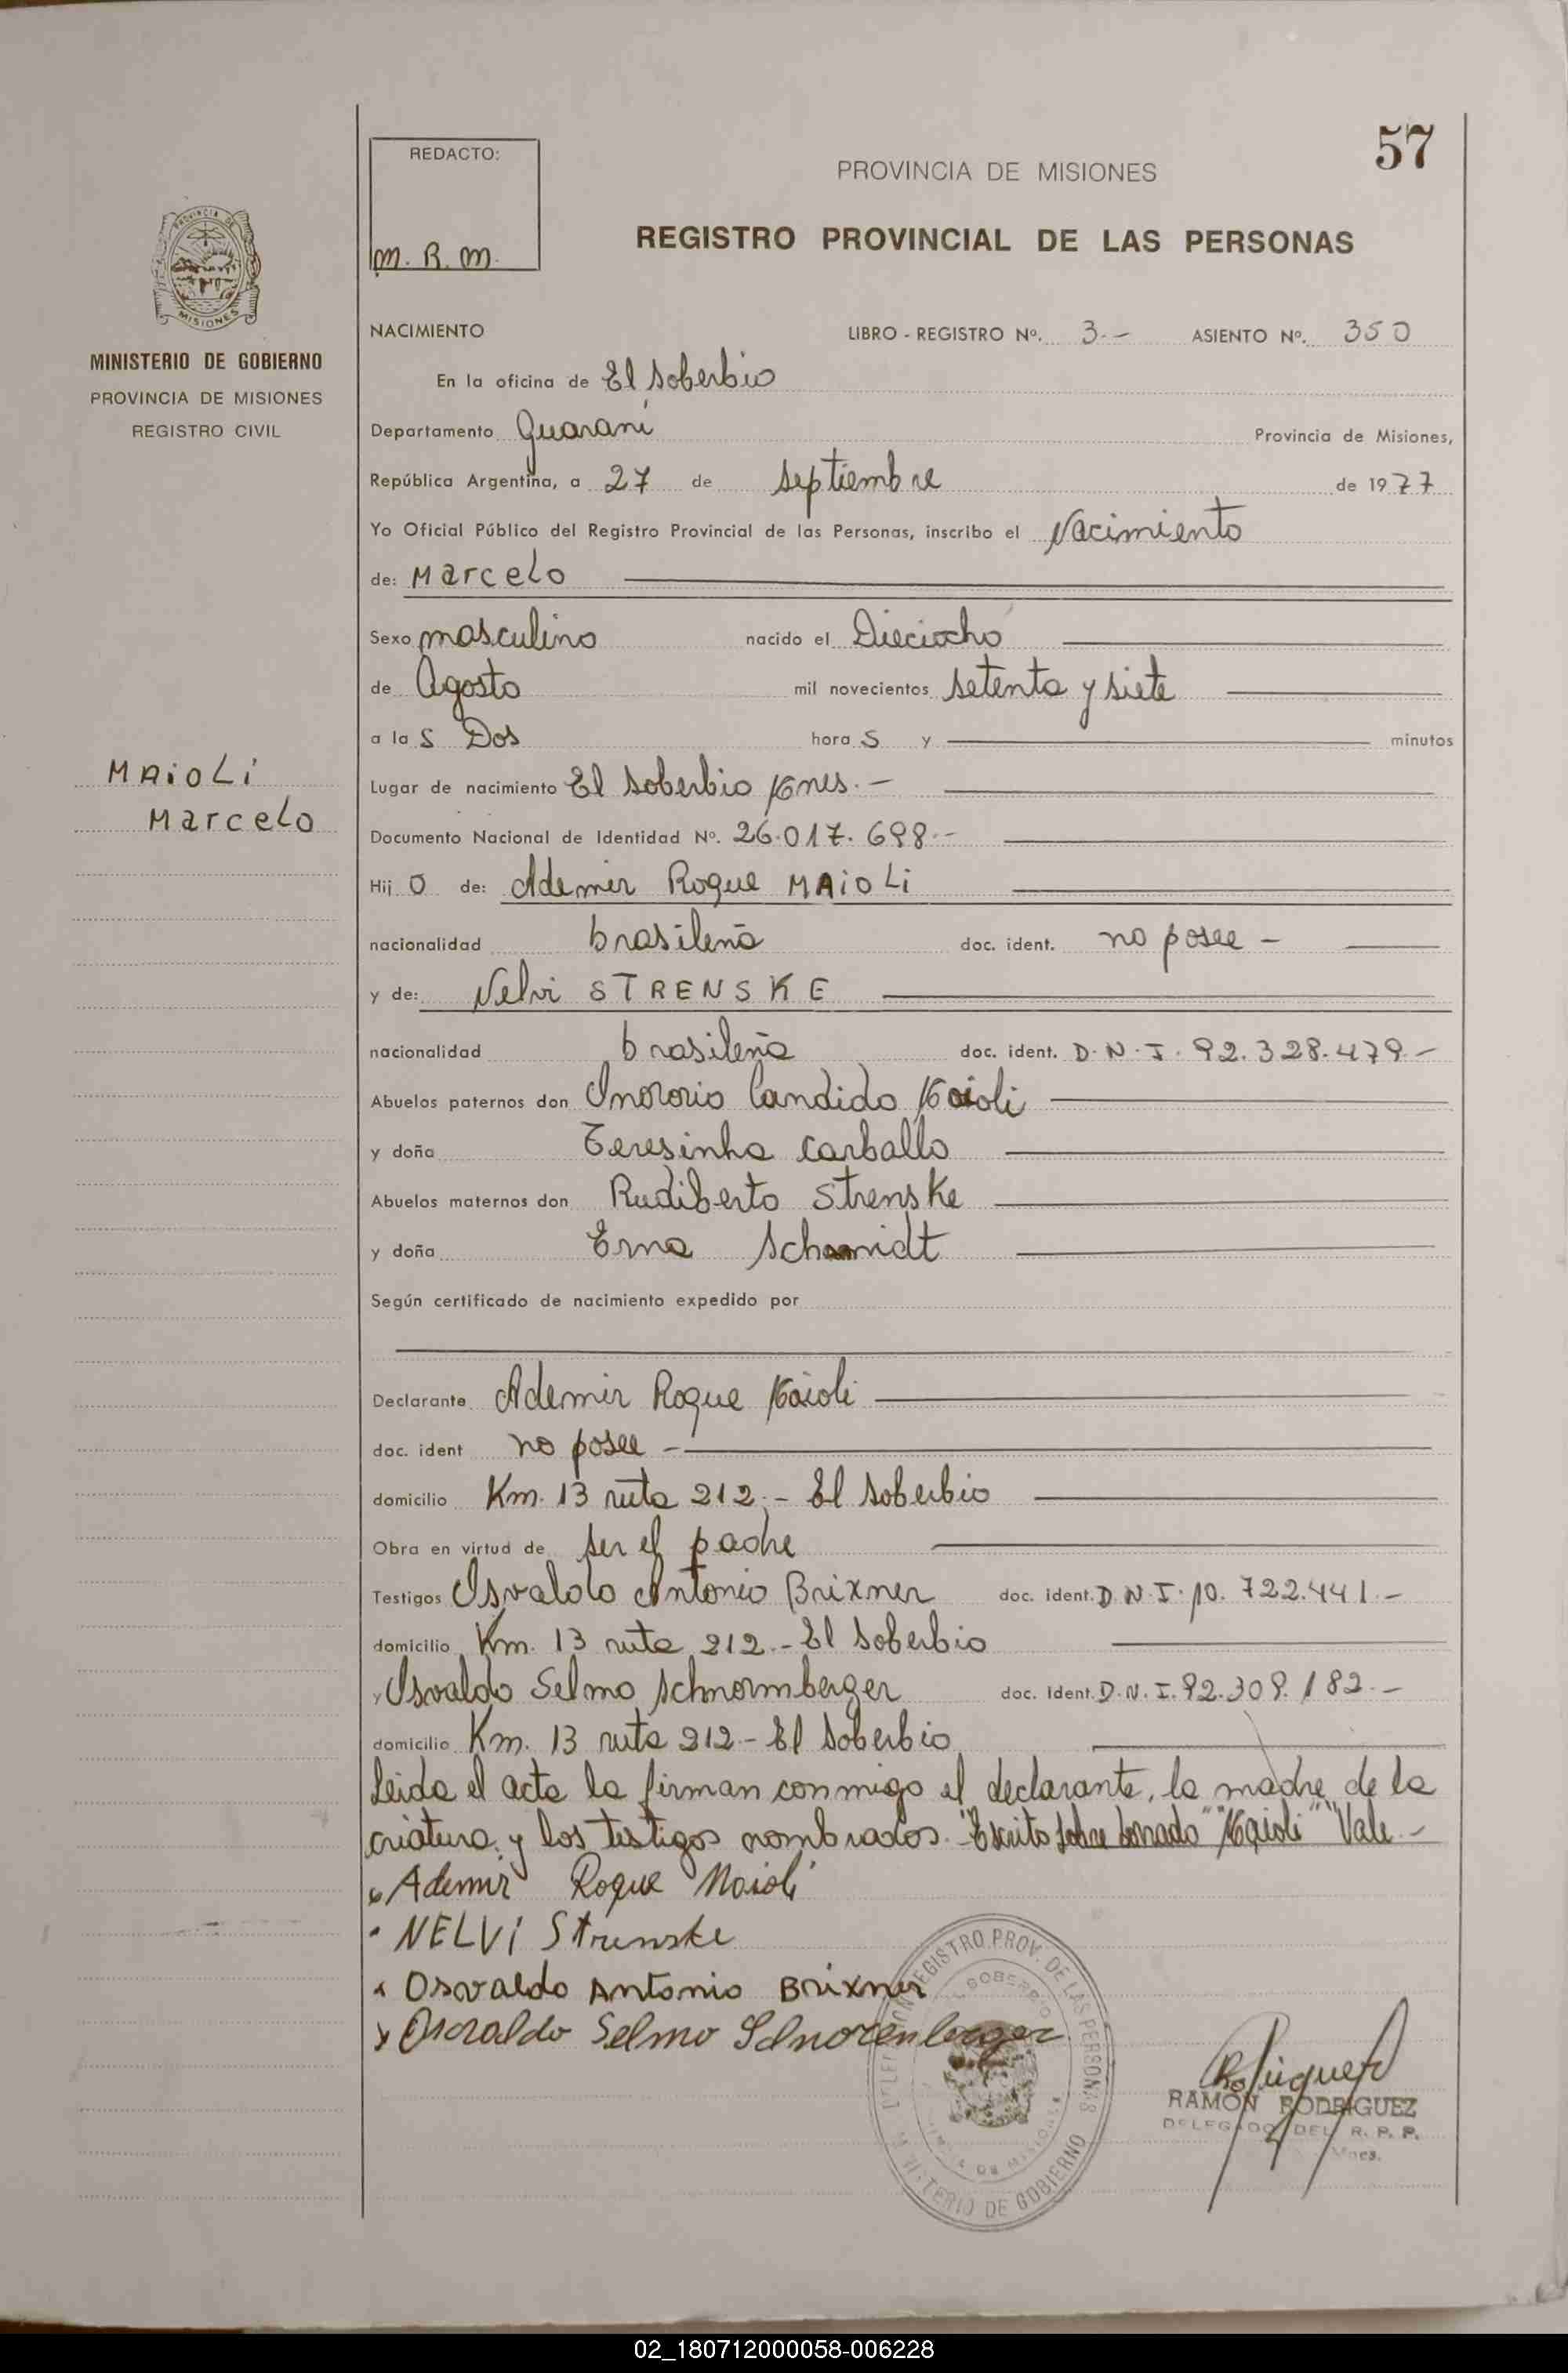 57
REDACTO:
M. R. M.
PROVINCIA DE MISIONES
REGISTRO PROVINCIAL DE LAS PERSONAS
PROVINCIA DE
MISIONES
MINISTERIO DE GOBIERNO
PROVINCIA DE MISIONES
REGISTRO CIVIL
NACIMIENTO LIBRO - REGISTRO Nº. 3.- ASIENTO Nº. 350
En la oficina de El Soberbio
Departamento Guaraní Provincia de Misiones,
República Argentina, a 27 de septiembre de 1977
Yo Oficial Público del Registro Provincial de las Personas, inscribo el Nacimiento
de: Marcelo
Sexo masculino nacido el Dieciocho
de Agosto mil novecientos setenta y siete
a la s Dos hora s y minutos
MAiOLi
Marcelo
Lugar de nacimiento El Soberbio Mnes.-
Documento Nacional de Identidad Nº. 26.017.698.-
Hij o de: Ademir Roque MAiOLi
nacionalidad brasileña doc. ident. no posee -
y de: Nelvi STRENSKE
nacionalidad brasileña doc. ident. D.N.I. 92.328.479.-
Abuelos paternos don Candido Maioli
y doña Teresinha Carballo
Abuelos maternos don Rudiberto Strenske
y doña Erna Schmidt
Según certificado de nacimiento expedido por
Declarante Ademir Roque Maioli
doc. ident no posee -
domicilio Km. 13 ruta 212.- El Soberbio
Obra en virtud de ser el padre
Testigos Osvaldo Antonio Brixner doc. ident. D.N.I. 10.722.441.-
domicilio Km. 13 ruta 212.- El Soberbio
y Osvaldo Selmo Schnornberger doc. ident. D.N.I. 92.309.182.-
domicilio Km. 13 ruta 212- El Soberbio
Leida el acta la firman conmigo el declarante, la madre de la
criatura y los testigos nombrados. "Escrito sobre borrado" "Maioli" Vale.-
Ademir Roque Maioli
NELVi Strenske
Osvaldo Antonio Brixner
Osvaldo Selmo Schnorenberger
REGISTRO PROV. DE LAS PERSONAS
EL SOBERBIO
MINISTERIO DE GOBIERNO
RAMON RODRIGUEZ
DELEGADO DEL R. P. P.
Mnes.
02_180712000058-006228